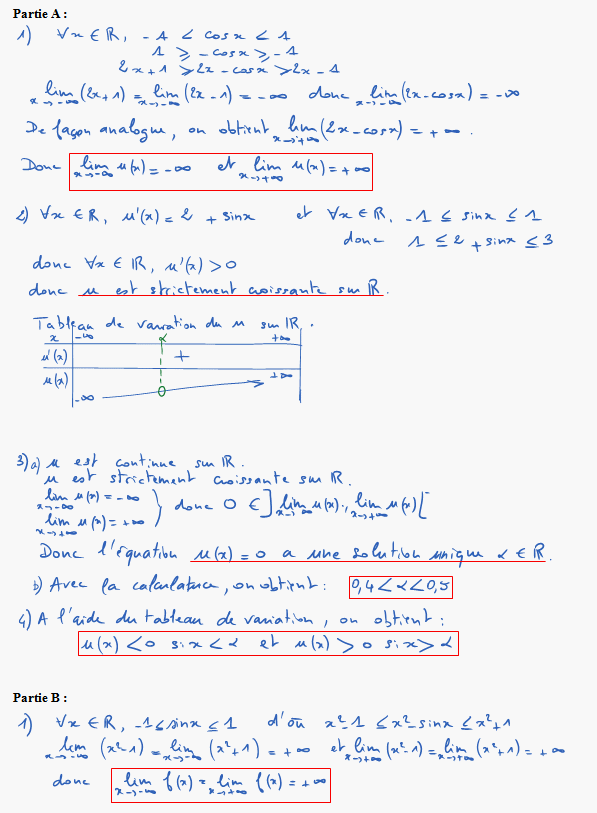 Partie A :
1) ∀x ∈ ℝ, -1 < cos x < 1
1 ⩾ -cos x ⩾ -1
2x+1 ⩾ 2x - cos x ⩾ 2x - 1
lim x→-∞ (2x+1) = lim x→-∞ (2x-1) = -∞ donc lim x→-∞ (2x-cos x) = -∞
De façon analogue, on obtient lim x→+∞ (2x-cos x) = +∞.
Donc lim x→-∞ u(x) = -∞ et lim x→+∞ u(x) = +∞
2) ∀x ∈ ℝ, u'(x) = 2 + sin x et ∀x ∈ ℝ, -1 ≤ sin x ≤ 1
donc 1 ≤ 2 + sin x ≤ 3
donc ∀x ∈ ℝ, u'(x) > 0
donc u est strictement croissante sur ℝ.
Tableau de variation du u sur ℝ.
x -∞ α +∞
u'(x) +
u(x) +∞
-∞ 0
3) a) u est continue sur ℝ.
u est strictement croissante sur ℝ.
lim x→-∞ u(x) = -∞
lim x→+∞ u(x) = +∞ } donc 0 ∈ ] lim x→-∞ u(x) ; lim x→+∞ u(x) [
Donc l'équation u(x) = 0 a une solution unique α ∈ ℝ.
b) Avec la calculatrice, on obtient : 0,4 < α < 0,5
4) A l'aide du tableau de variation, on obtient :
u(x) < 0 si x < α et u(x) > 0 si x > α
Partie B :
1) ∀x ∈ ℝ, -1 ≤ sin x ≤ 1 d'où x²-1 ≤ x²-sin x ≤ x²+1
lim x→-∞ (x²-1) = lim x→-∞ (x²+1) = +∞ et lim x→+∞ (x²-1) = lim x→+∞ (x²+1) = +∞
donc lim x→-∞ f(x) = lim x→+∞ f(x) = +∞